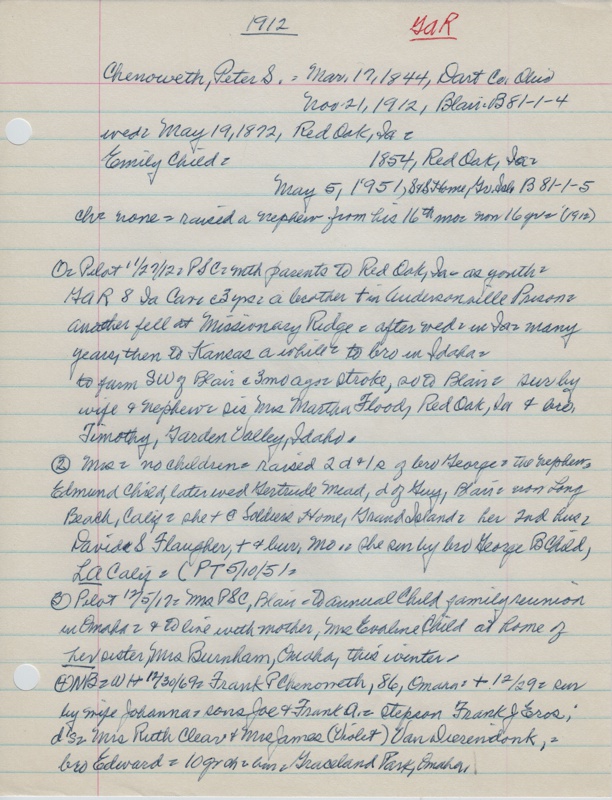 1912 GaR
Chenoweth, Peter S. = Mar. 17, 1844, Dart Co. Ohio
Nov. 21, 1912, Blair = B 81-1-4
wed = May 19, 1872, Red Oak, Ia =
Emily Child = 1854, Red Oak, Ia =
May 5, 1951, S&S Home, Gr. Isle B 81-1-5
ch = none = raised a nephew from his 16th mo = now 16 yr = (1912)
① = Pilot 11/27/12 = PSC = with parents to Red Oak, Ia = as youth =
GaR 8 Ia Cav = c3 yrs = a brother + in Andersonville Prison =
another fell at Missionary Ridge = after wed = in Ia = many
years, then to Kansas a while = to bro in Idaho =
to farm SW of Blair c3mo ago = stroke, so to Blair = sur by
wife & nephew = sis Mrs Martha Flood, Red Oak, Ia & bro.
Timothy, Garden Valley, Idaho.
② Mrs = no children = raised 2 d & 1 s of bro George = the nephew,
Edmund Child, later wed Gertrude Mead, d of Guy, Blair = now Long
Beach, Calif = she + @ Soldiers Home, Grand Island = her 2nd hus =
David S Flaugher, + & bur. Mo. = she sur by bro George B Child,
LA Calif = (PT 5/10/51 =
③ Pilot 12/5/12 = Mrs PSC, Blair = to annual Child family reunion
in Omaha = & to live with mother, Mrs Evaline Child at home of
her sister, Mrs Burnham, Omaha, this winter.
④ NB = WH 12/30/69 = Frank P Chenoweth, 86, Omaha = + 12/29 = sur
by wife Johanna = sons Joe & Frank A. = stepson Frank J Eros;
d's = Mrs Ruth Cleav & Mrs James (Violet) Van Dierendonk, =
bro Edward = 10 gr ch = bur = Graceland Park, Omaha.